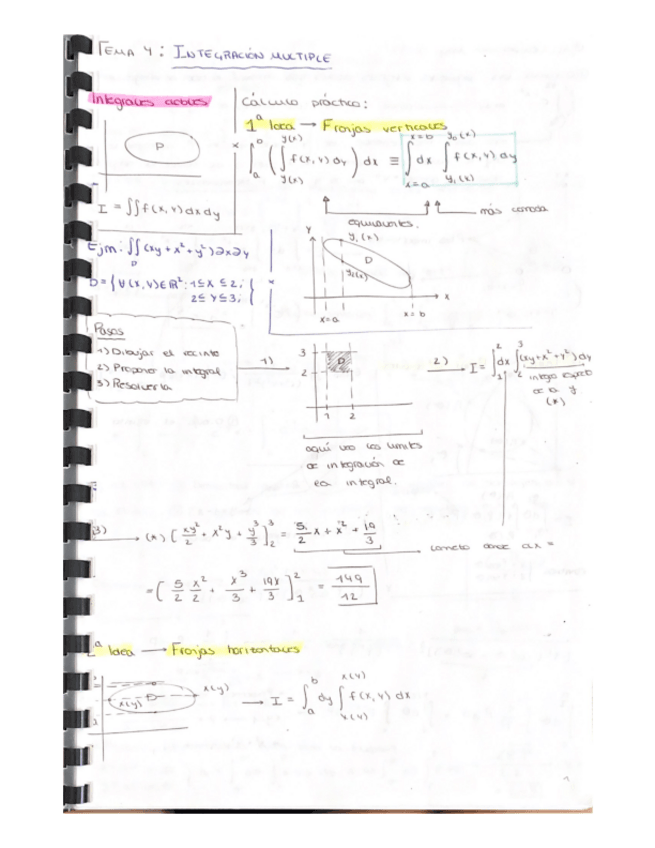 TEMA 4: INTEGRACIÓN MULTIPLE
Integrales dobles
D
I = ∬ f(x,y) dx dy
Cálculo práctico:
1ª Idea → Franjas verticales
∫ₐᵇ (∫ f(x,y) dy) dx ≡ ∫ dx ∫ f(x,y) dy
y(x)
y(x)
x=b
x=a
y₂(x)
y₁(x)
equivalentes.
más comoda
Y
y₂(x)
D
y₁(x)
x
x=a
x=b
Ejm: ∬ (xy + x² + y²) ∂x∂y
D
D = { ∀(x,y) ∈ ℝ² : 1≤x≤2;
2≤y≤3;
Pasos
1) Dibujar el recinto
2) Proponer la integral
3) Resolverla
1)
3
2
D
1 2
aquí veo los limites
de integración de
la integral.
2) → I = ∫₁² dx ∫₂³ (xy + x² + y²) dy
integro respecto
de a y
(*)
3) → (*) [xy²/2 + x²y + y³/3]₂³ = 5/2 x + x² + 19/3
cometo donde dx =
= [5/2 x²/2 + x³/3 + 19x/3]₁² = 149/12
ª Idea → Franjas horizontales
D
x(y)
x(y)
→ I = ∫ₐᵇ dy ∫ f(x,y) dx
x(y)
x(y)